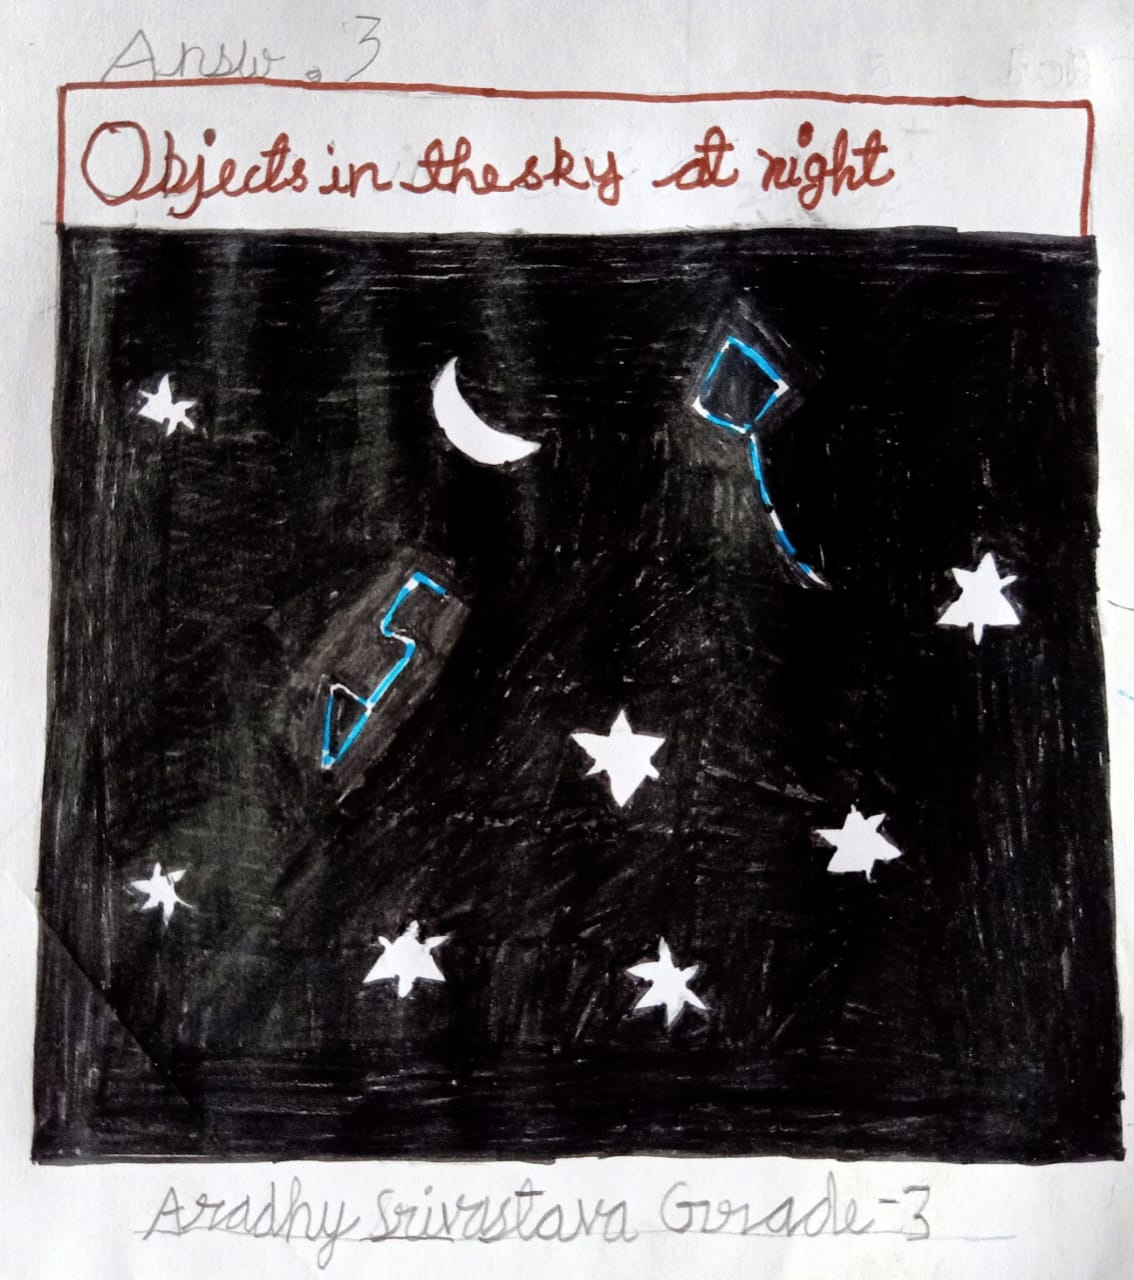 Answ. 3
Objects in the sky at night
Aradhy Srivastava Grade-3